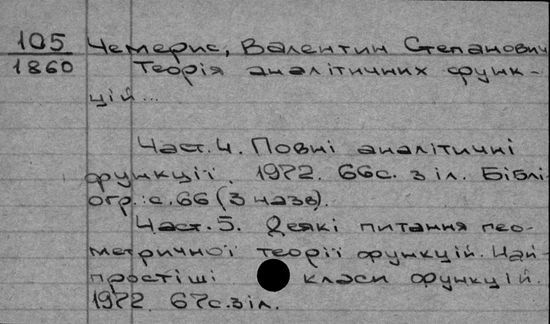 105 Чемерис, Валентин Степанович
1860 Теорія аналітичних функ-
цій...
Част. 4. Повні аналітичні
функції. 1972. 66с. з іл. Біблі-
огр: с. 66 (3 назв).
Част. 5. Деякі питання гео-
метричної теорії функцій. Най-
простіші класи функцій.
1972. 67с. з іл.